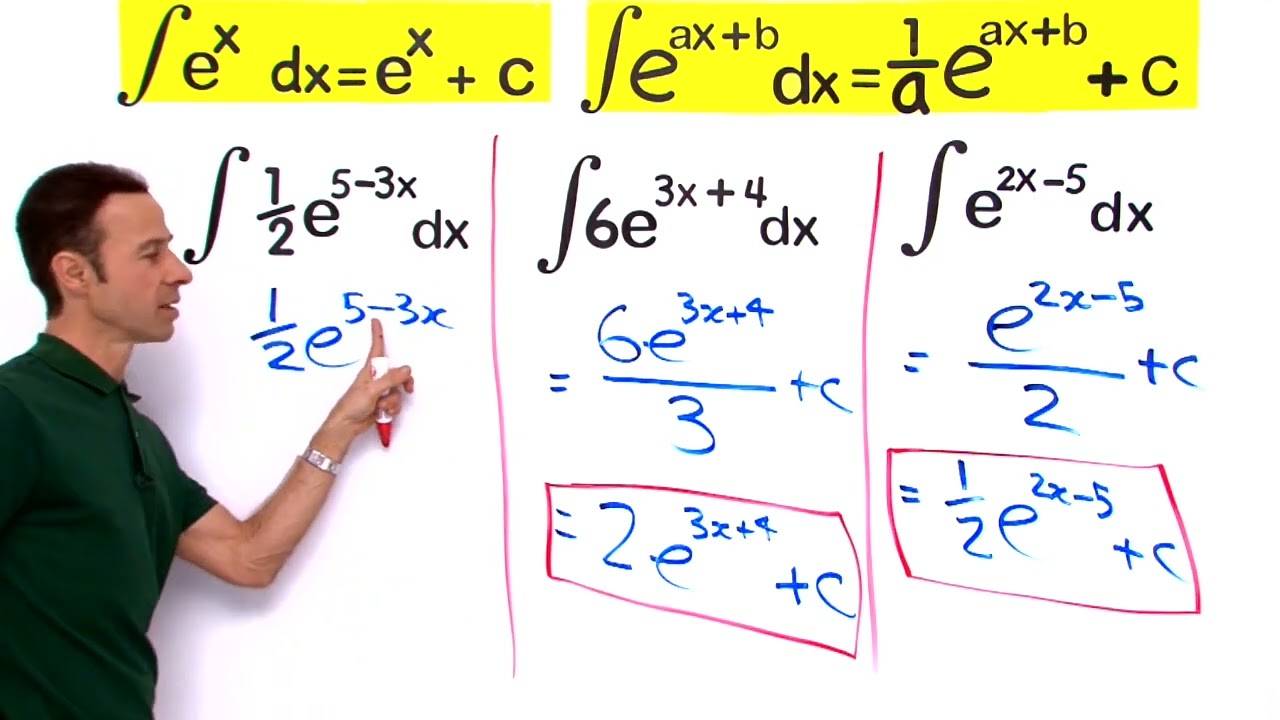 ∫ eˣ dx = eˣ + c
∫ eᵃˣ⁺ᵇ dx = 1/a eᵃˣ⁺ᵇ + c
∫ 1/2 e⁵⁻³ˣ dx
1/2 e⁵⁻³ˣ
∫ 6e³ˣ⁺⁴ dx
= 6·e³ˣ⁺⁴/3 + c
= 2·e³ˣ⁺⁴ + c
∫ e²ˣ⁻⁵ dx
= e²ˣ⁻⁵/2 + c
= 1/2 e²ˣ⁻⁵ + c